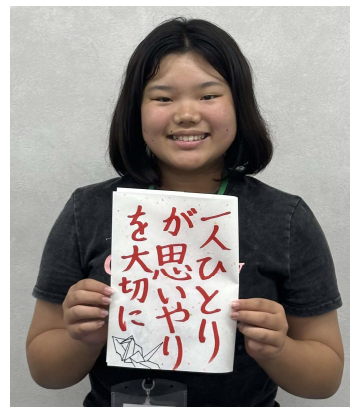 一人ひとり
が思いやり
を大切に